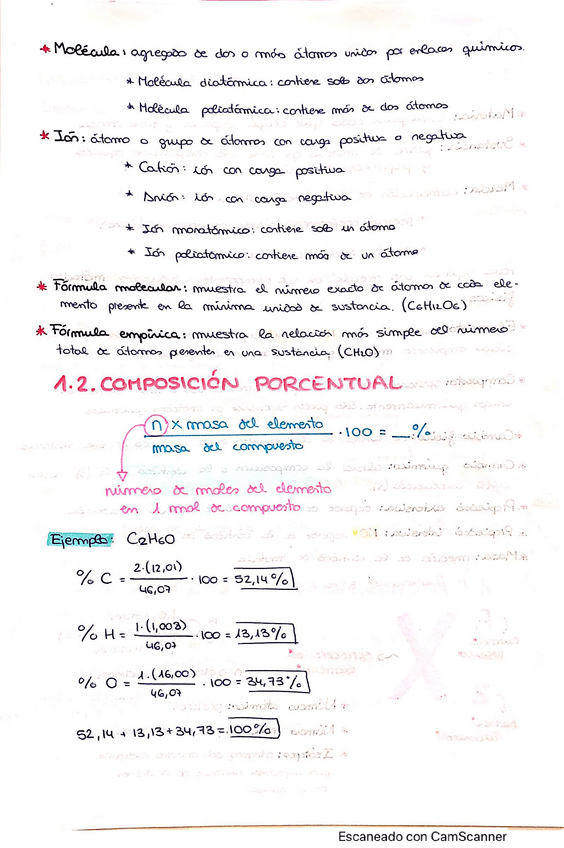 * Molécula: agregado de dos o más átomos unidos por enlaces químicos.
* Molécula diatómica: contiene solo dos átomos
* Molécula poliatómica: contiene más de dos átomos
* Ión: átomo o grupo de átomos con carga positiva o negativa
* Catión: ión con carga positiva
* Anión: ión con carga negativa
* Ión monatómico: contiene solo un átomo
* Ión poliatómico: contiene más de un átomo
* Fórmula molecular: muestra el número exacto de átomos de cada ele-
mento presente en la mínima unidad de sustancia. (C6H12O6)
* Fórmula empírica: muestra la relación más simple del número
total de átomos presentes en una sustancia, (CH2O)
1.2. COMPOSICIÓN PORCENTUAL
n x masa del elemento
masa del compuesto
· 100 = __%
número de moles del elemento
en 1 mol de compuesto
Ejemplo: C2H6O
% C = 2·(12,01) / 46,07 · 100 = 52,14%
% H = 1·(1,008) / 46,07 · 100 = 13,13%
% O = 1·(16,00) / 46,07 · 100 = 34,73%
52,14 + 13,13 + 34,73 = 100%
Escaneado con CamScanner